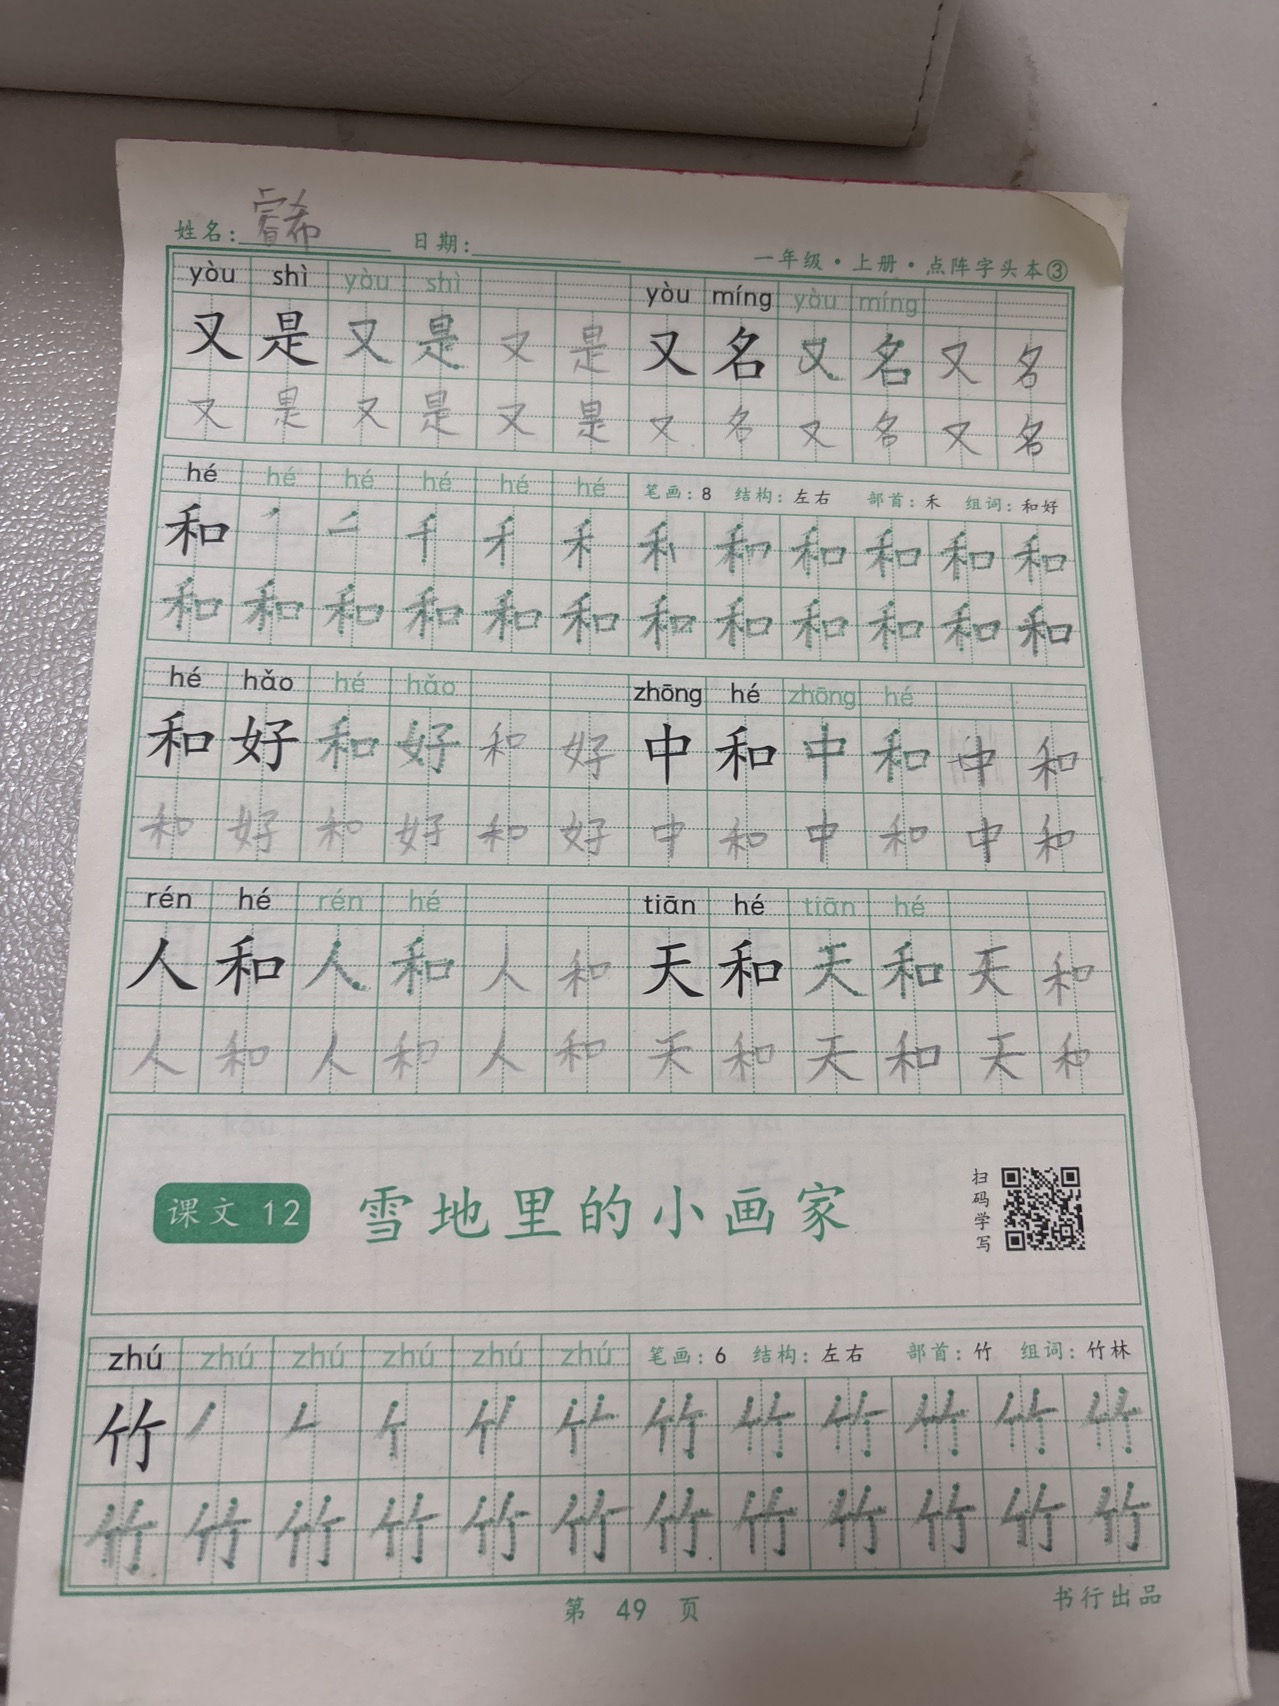 姓名: 睿希 日期: 一年级·上册·点阵字头本③
yòu shì yòu shì yòu míng yòu míng
又 是 又 是 又 是 又 名 又 名 又 名
又 是 又 是 又 是 又 名 又 名 又 名
hé hé hé hé hé hé 笔画: 8 结构: 左右 部首: 禾 组词: 和好
和 和 和 和 和 和
和 和 和 和 和 和 和 和 和 和 和 和
hé hǎo hé hǎo zhōng hé zhōng hé
和 好 和 好 和 好 中 和 中 和 中 和
和 好 和 好 和 好 中 和 中 和 中 和
rén hé rén hé tiān hé tiān hé
人 和 人 和 人 和 天 和 天 和 天 和
人 和 人 和 人 和 天 和 天 和 天 和
课文 12 雪地里的小画家 扫码学写
zhú zhú zhú zhú zhú zhú 笔画: 6 结构: 左右 部首: 竹 组词: 竹林
竹 竹 竹 竹 竹 竹 竹
竹 竹 竹 竹 竹 竹 竹 竹 竹 竹 竹 竹
第 49 页 书行出品